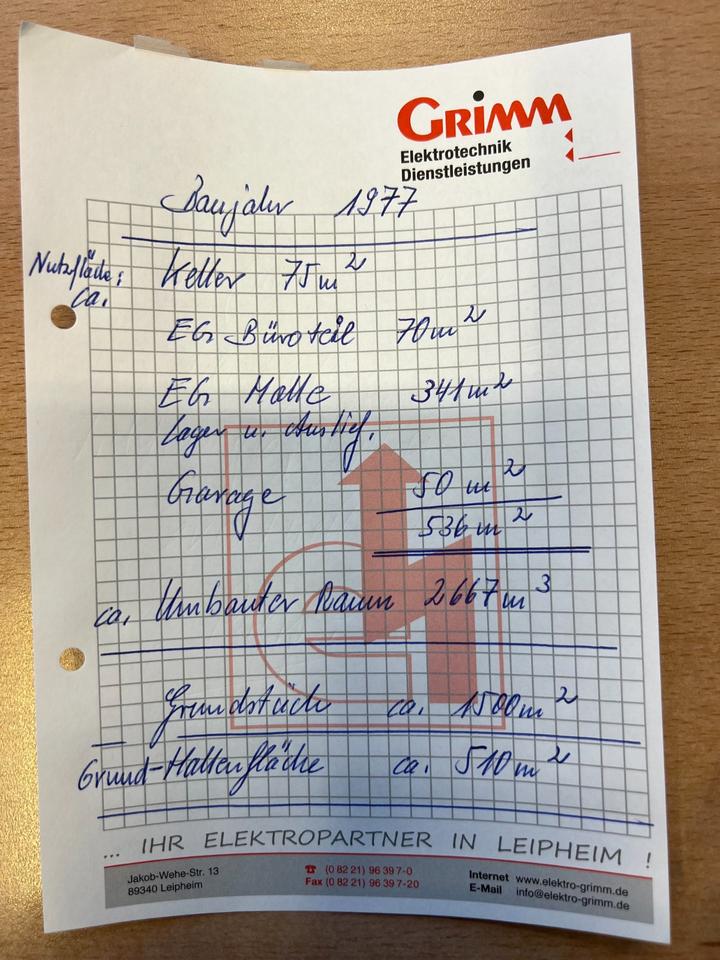 GRIMM
Elektrotechnik
Dienstleistungen
Baujahr 1977
Nutzfläche: Keller 75 m²
ca.
EG Büroteil 70 m²
EG Halle 341 m²
Lager u. Auslief.
Garage 50 m²
536 m²
ca. Umbauter Raum 2667 m³
Grundstück ca. 1500 m²
Grund-Hallenfläche ca. 510 m²
... IHR ELEKTROPARTNER IN LEIPHEIM !
Jakob-Wehe-Str. 13 ☎ (0 82 21) 96 39 7-0 Internet www.elektro-grimm.de
89340 Leipheim Fax (0 82 21) 96 39 7-20 E-Mail info@elektro-grimm.de